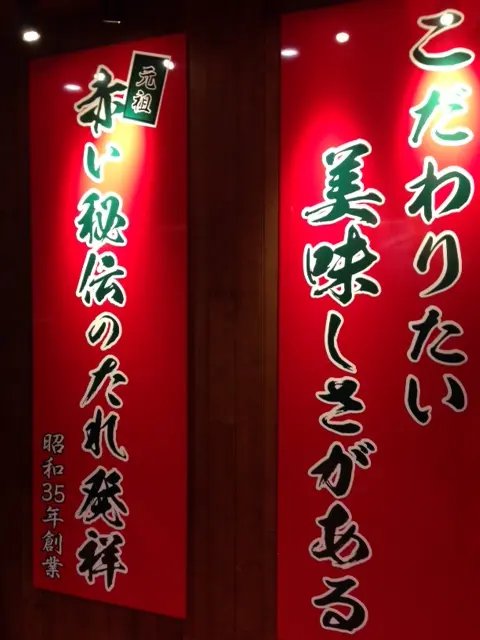 こだわりたい
美味しさがある
元祖
赤い秘伝のたれ発祥
昭和35年創業